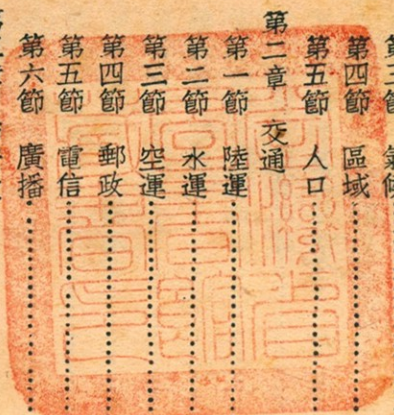 第三節 氣候
第四節 區域
第五節 人口
第二章 交通
第一節 陸運
第二節 水運
第三節 空運
第四節 郵政
第五節 電信
第六節 廣播